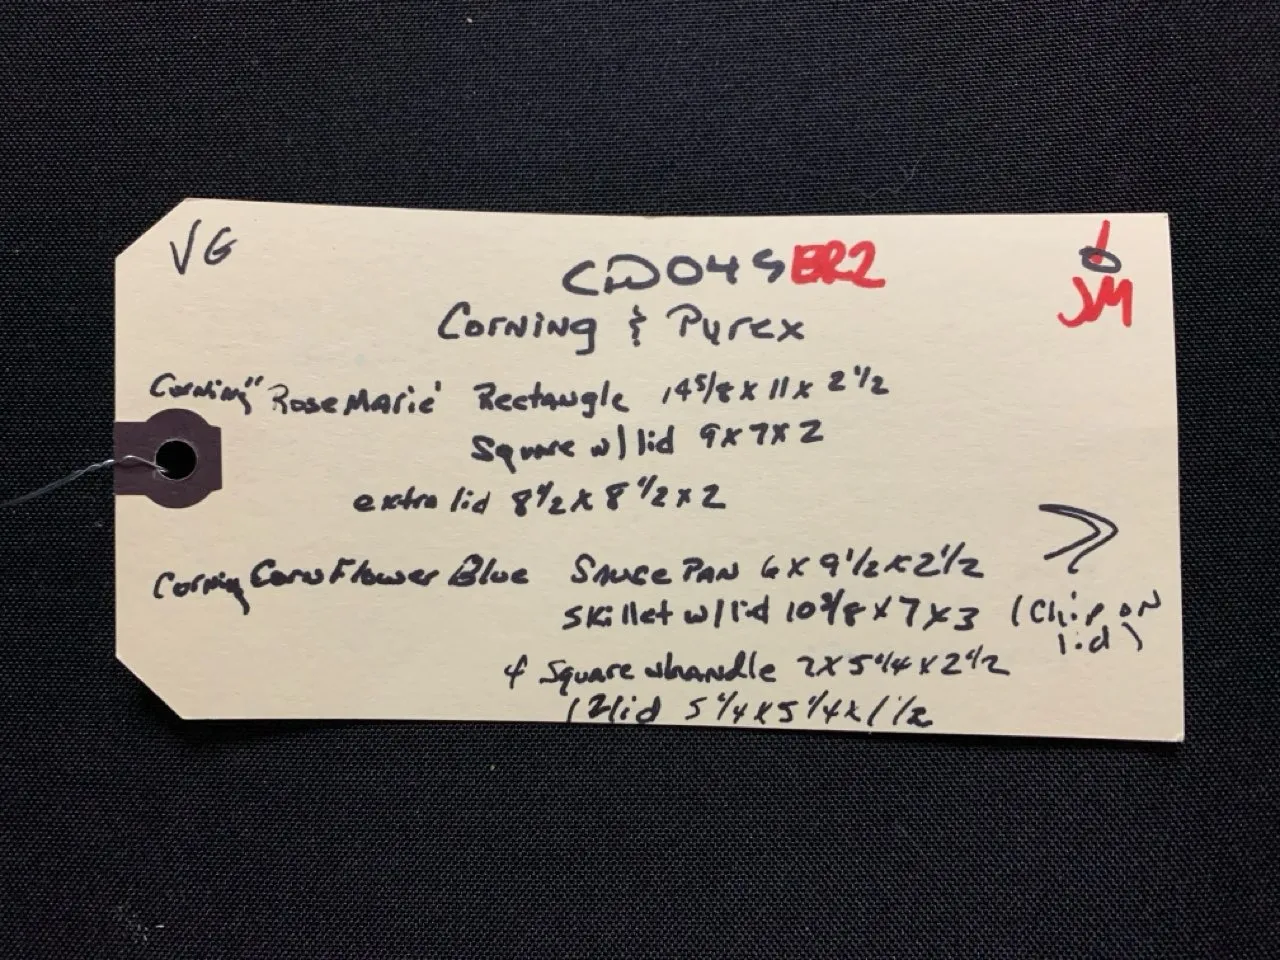 VG
CD04SER2
JM
Corning & Pyrex
Corning "Rose Marie" Rectangle 14 5/8 x 11 x 2 1/2
Square w/ lid 9 x 7 x 2
extra lid 8 1/2 x 8 1/2 x 2
Corning Corn Flower Blue Sauce Pan 6 x 9 1/2 x 2 1/2
Skillet w/ lid 10 3/8 x 7 x 3 (Chip on lid)
4 Square whandle 7 x 5 1/4 x 2 1/2
lid 5 1/4 x 5 1/4 x 1 1/2